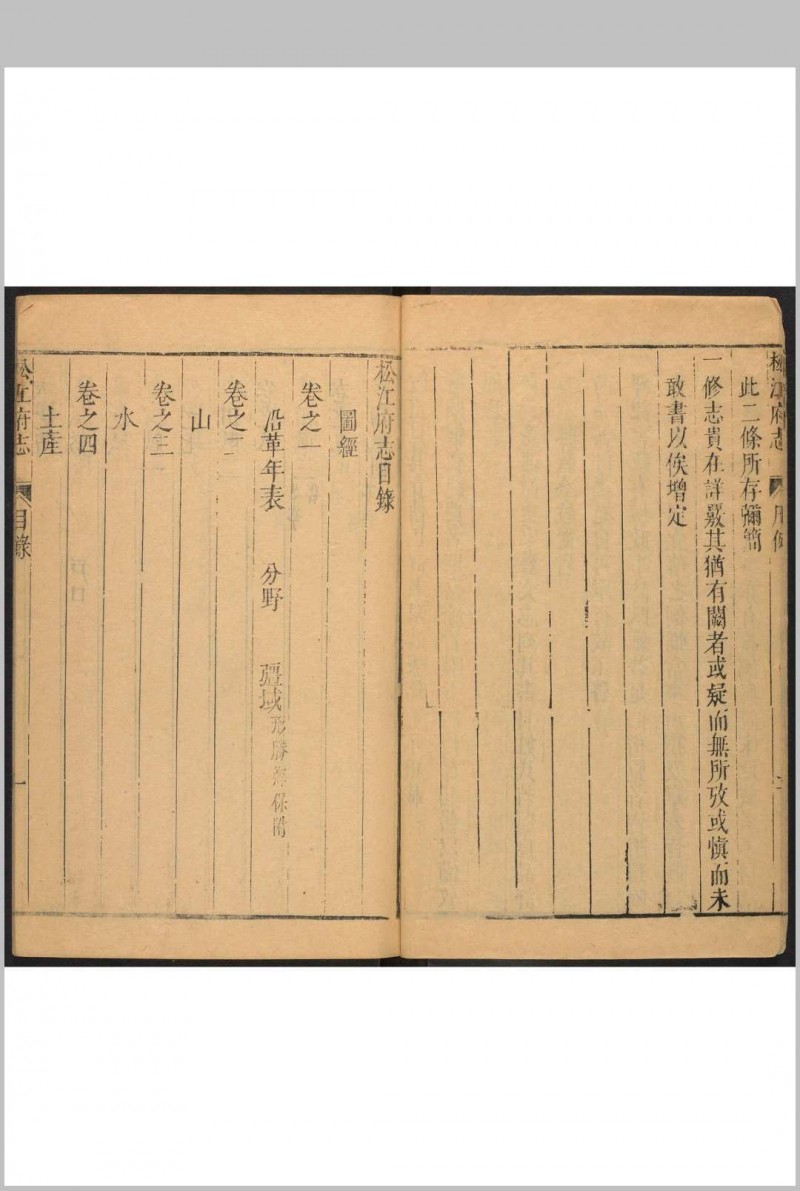 松江府志 凡例
此二條所存彌簡
一修志貴在詳覈其猶有闕者或疑而無所攷或慎而未
敢書以俟增定
松江府志目錄
圖經
卷之一
沿革年表 分野 疆域形勝 保附
卷之二
山
卷之三
水
卷之四
土產
松江府志 目錄 一